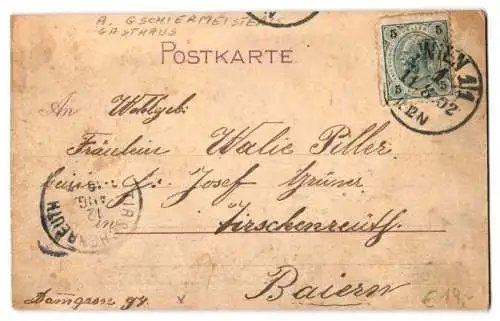 A. GSCHIERMEISTER'S
GASTHAUS
POSTKARTE
5 5
WIEN 11
11.8.02
An Wohlgeb.
Fräulein Walie Piller
beim H. Josef Grüner
in Tirschenreuth
Baiern
TIRSCHENREUTH
12
AUG.
Damgron 94
€ 19,-